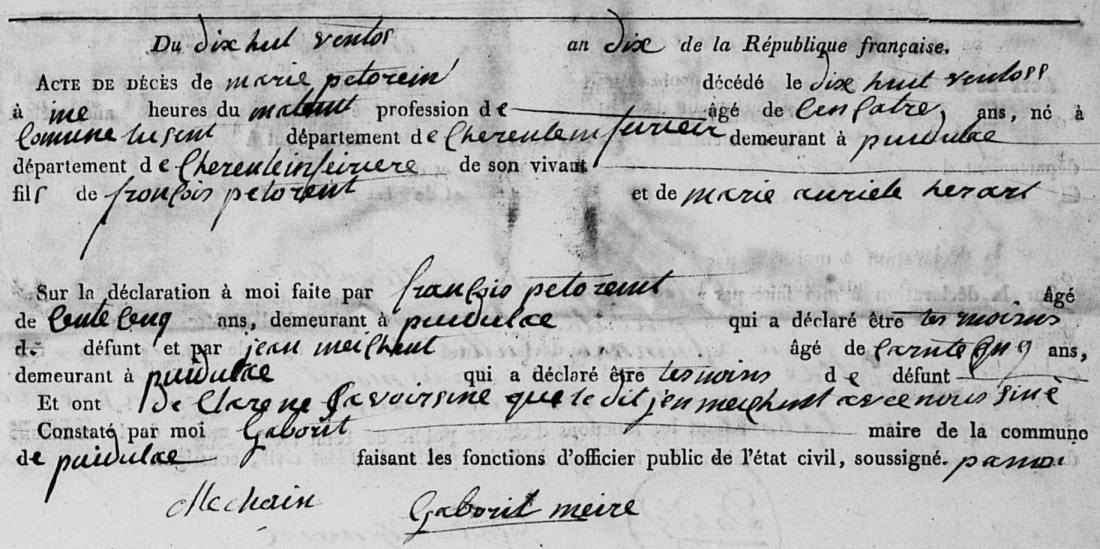 Du dix huit ventos an dix de la République française.
ACTE DE DÉCÈS de marie petorein décédé le dix huit ventoss
à ine heures du matient profession de âgé de cencatre ans, né à
Comune lusent département de Cherenteinfurieir demeurant à puidulae
département de Cherenteinfiriere de son vivant
fils de françois petorent et de marie auriele herart
Sur la déclaration à moi faite par françois petorent âgé
de ans, demeurant à puidulae qui a déclaré être tes moins
d défunt et par jean meichent âgé de ans,
demeurant à puidulae qui a déclaré être tesmoins de défunt
Et ont declare ne savoir sine que le dit jen meichent avec nous sinè
Constaté par moi Gaborit maire de la commune
de puidulae faisant les fonctions d'officier public de l'état civil, soussigné. pamoi
Mechain Gaborit meire